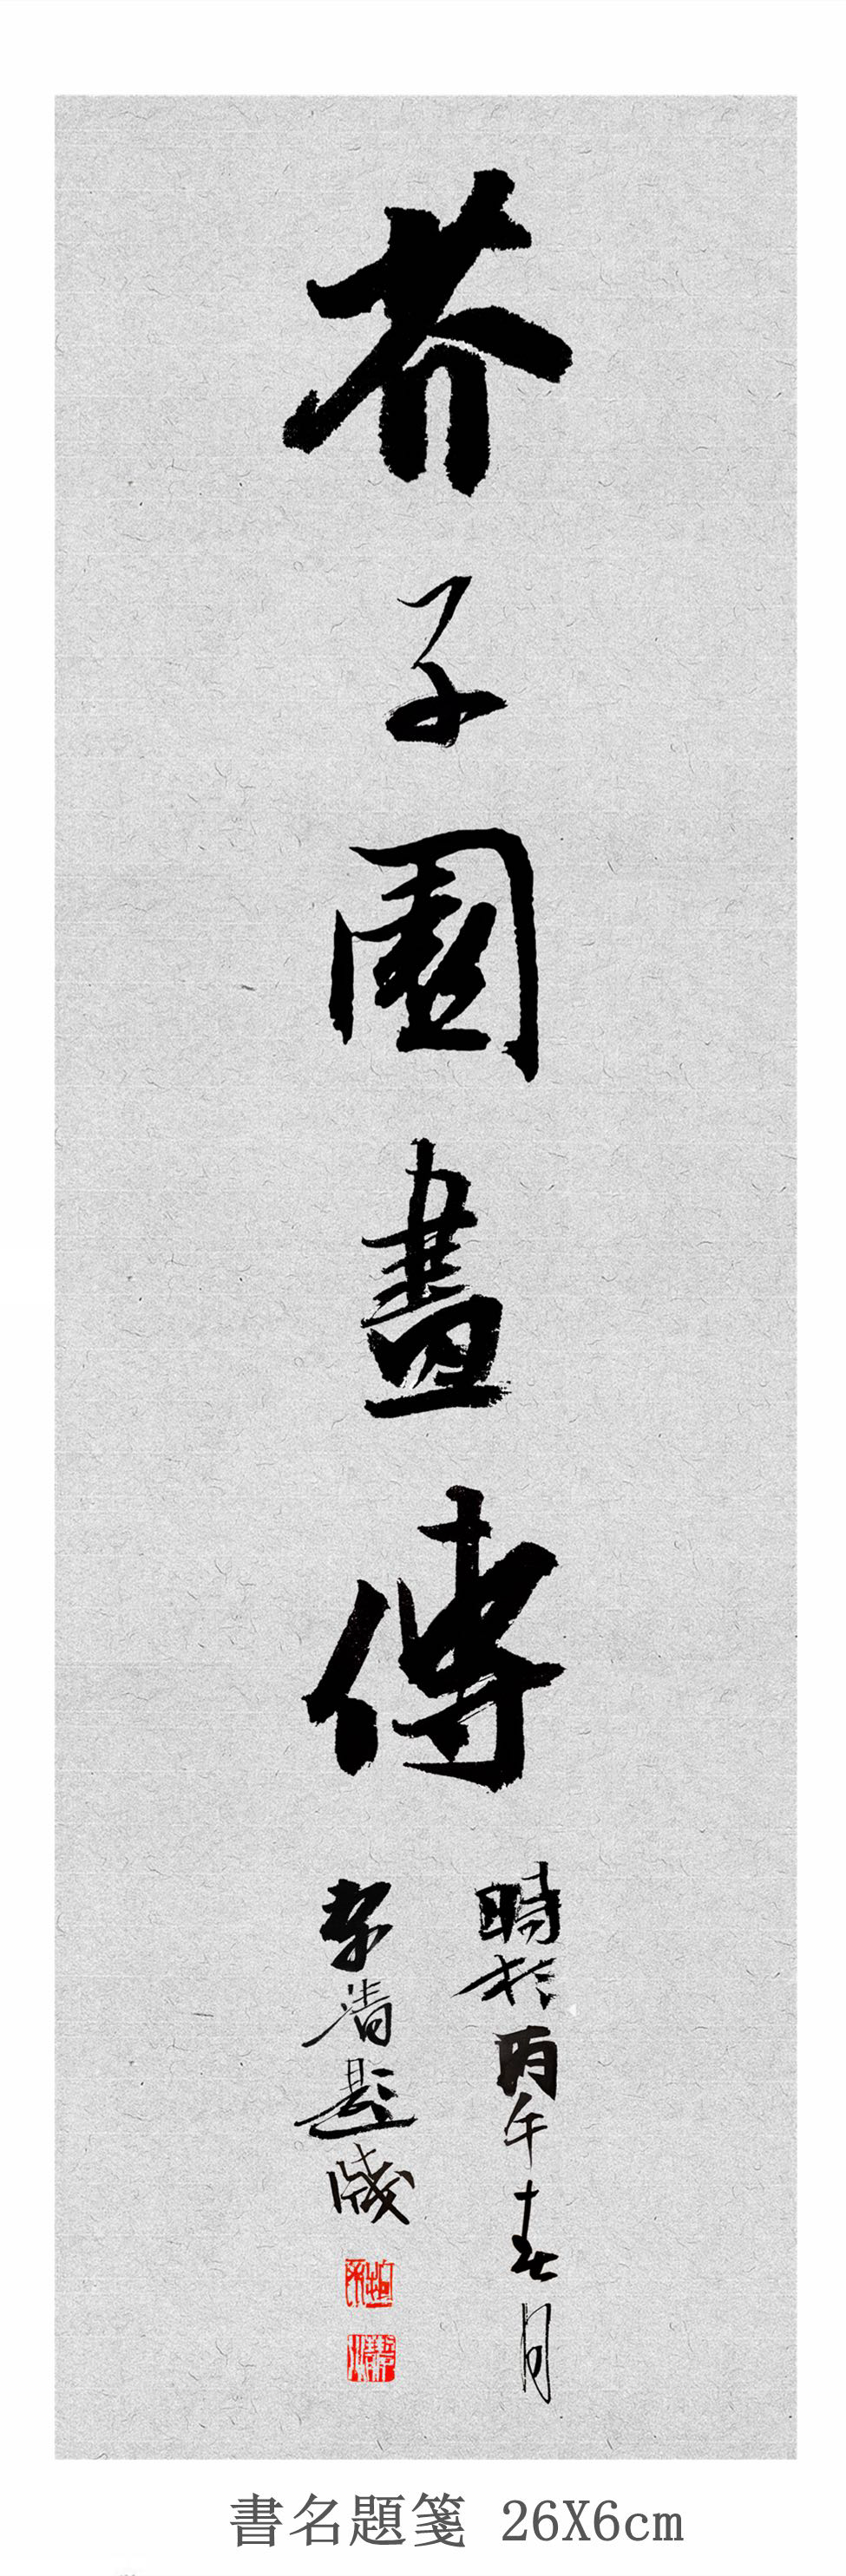 芥子園畫傳
時於丙午春月
清題牋
書名題箋 26X6cm